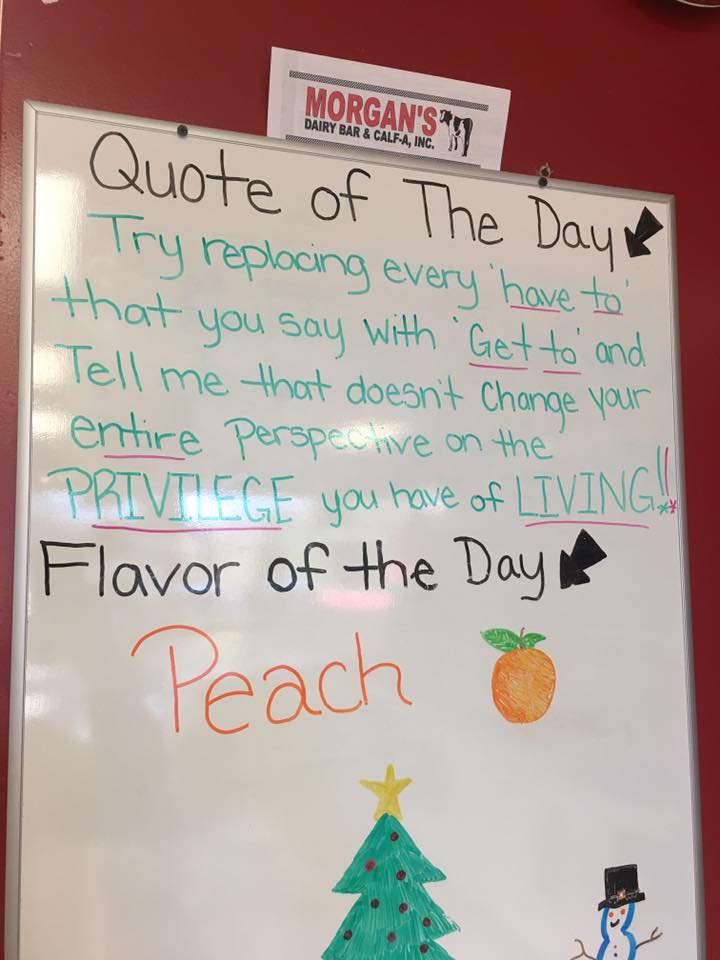 MORGAN'S
DAIRY BAR & CALF-A, INC.
Quote of The Day
Try replacing every 'have to'
that you say with 'Get to' and
Tell me that doesn't change your
entire Perspective on the
PRIVILEGE you have of LIVING!!
Flavor of the Day
Peach